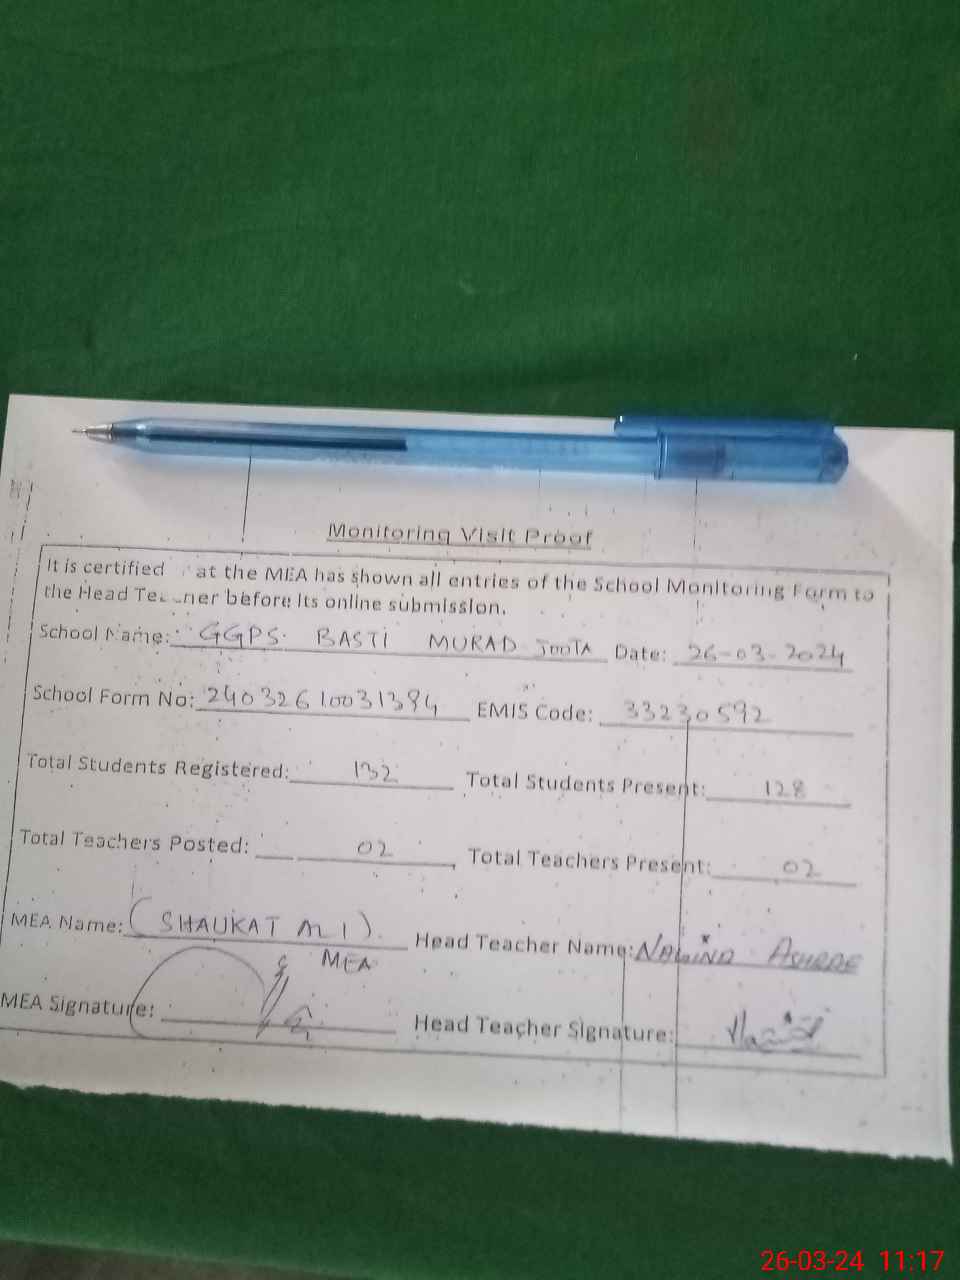 Monitoring Visit Proof
It is certified at the MEA has shown all entries of the School Monitoring Form to
the Head Te ner before its online submission.
School Name: GGPS. BASTI MURAD JOOTA Date: 26-03-2024
School Form No: 24032610031384 EMIS Code: 33230592
Total Students Registered: 132 Total Students Present: 128
Total Teachers Posted: 02 Total Teachers Present: 02
MEA Name: (SHAUKAT ALI) Head Teacher Name:
MEA
MEA Signature: Head Teacher Signature:
26-03-24 11:17